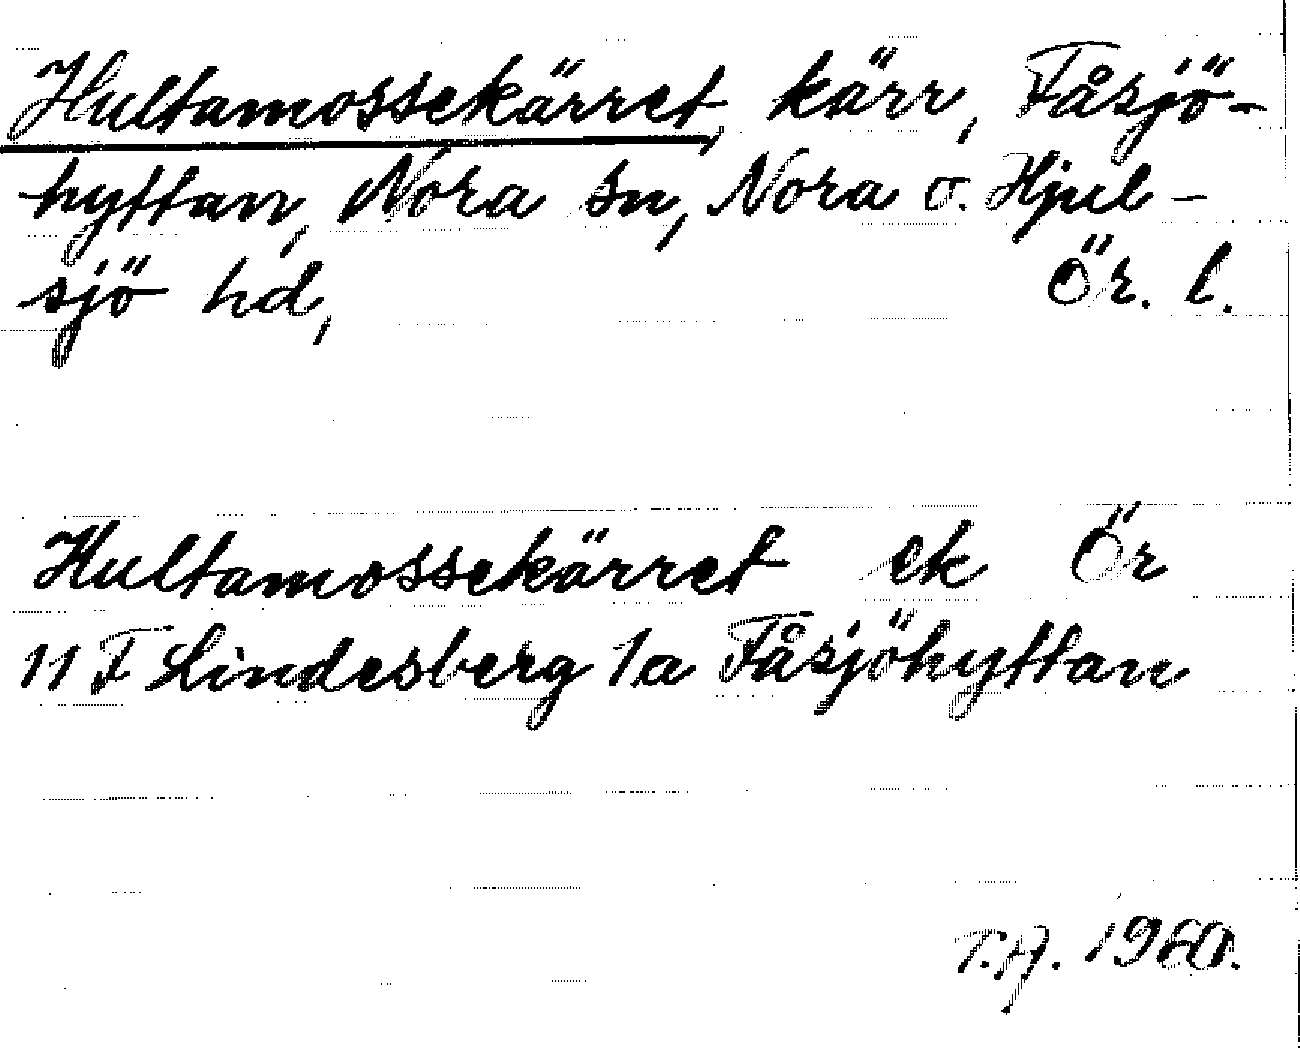 Hultamossekärret, kärr, Fåsjö-
hyttan, Nora sn, Nora o. Hjul-
sjö hd, Ör. l.
Hultamossekärret ek Ör
11 F Lindesberg 1a Fåsjöhyttan
T.A. 1960.